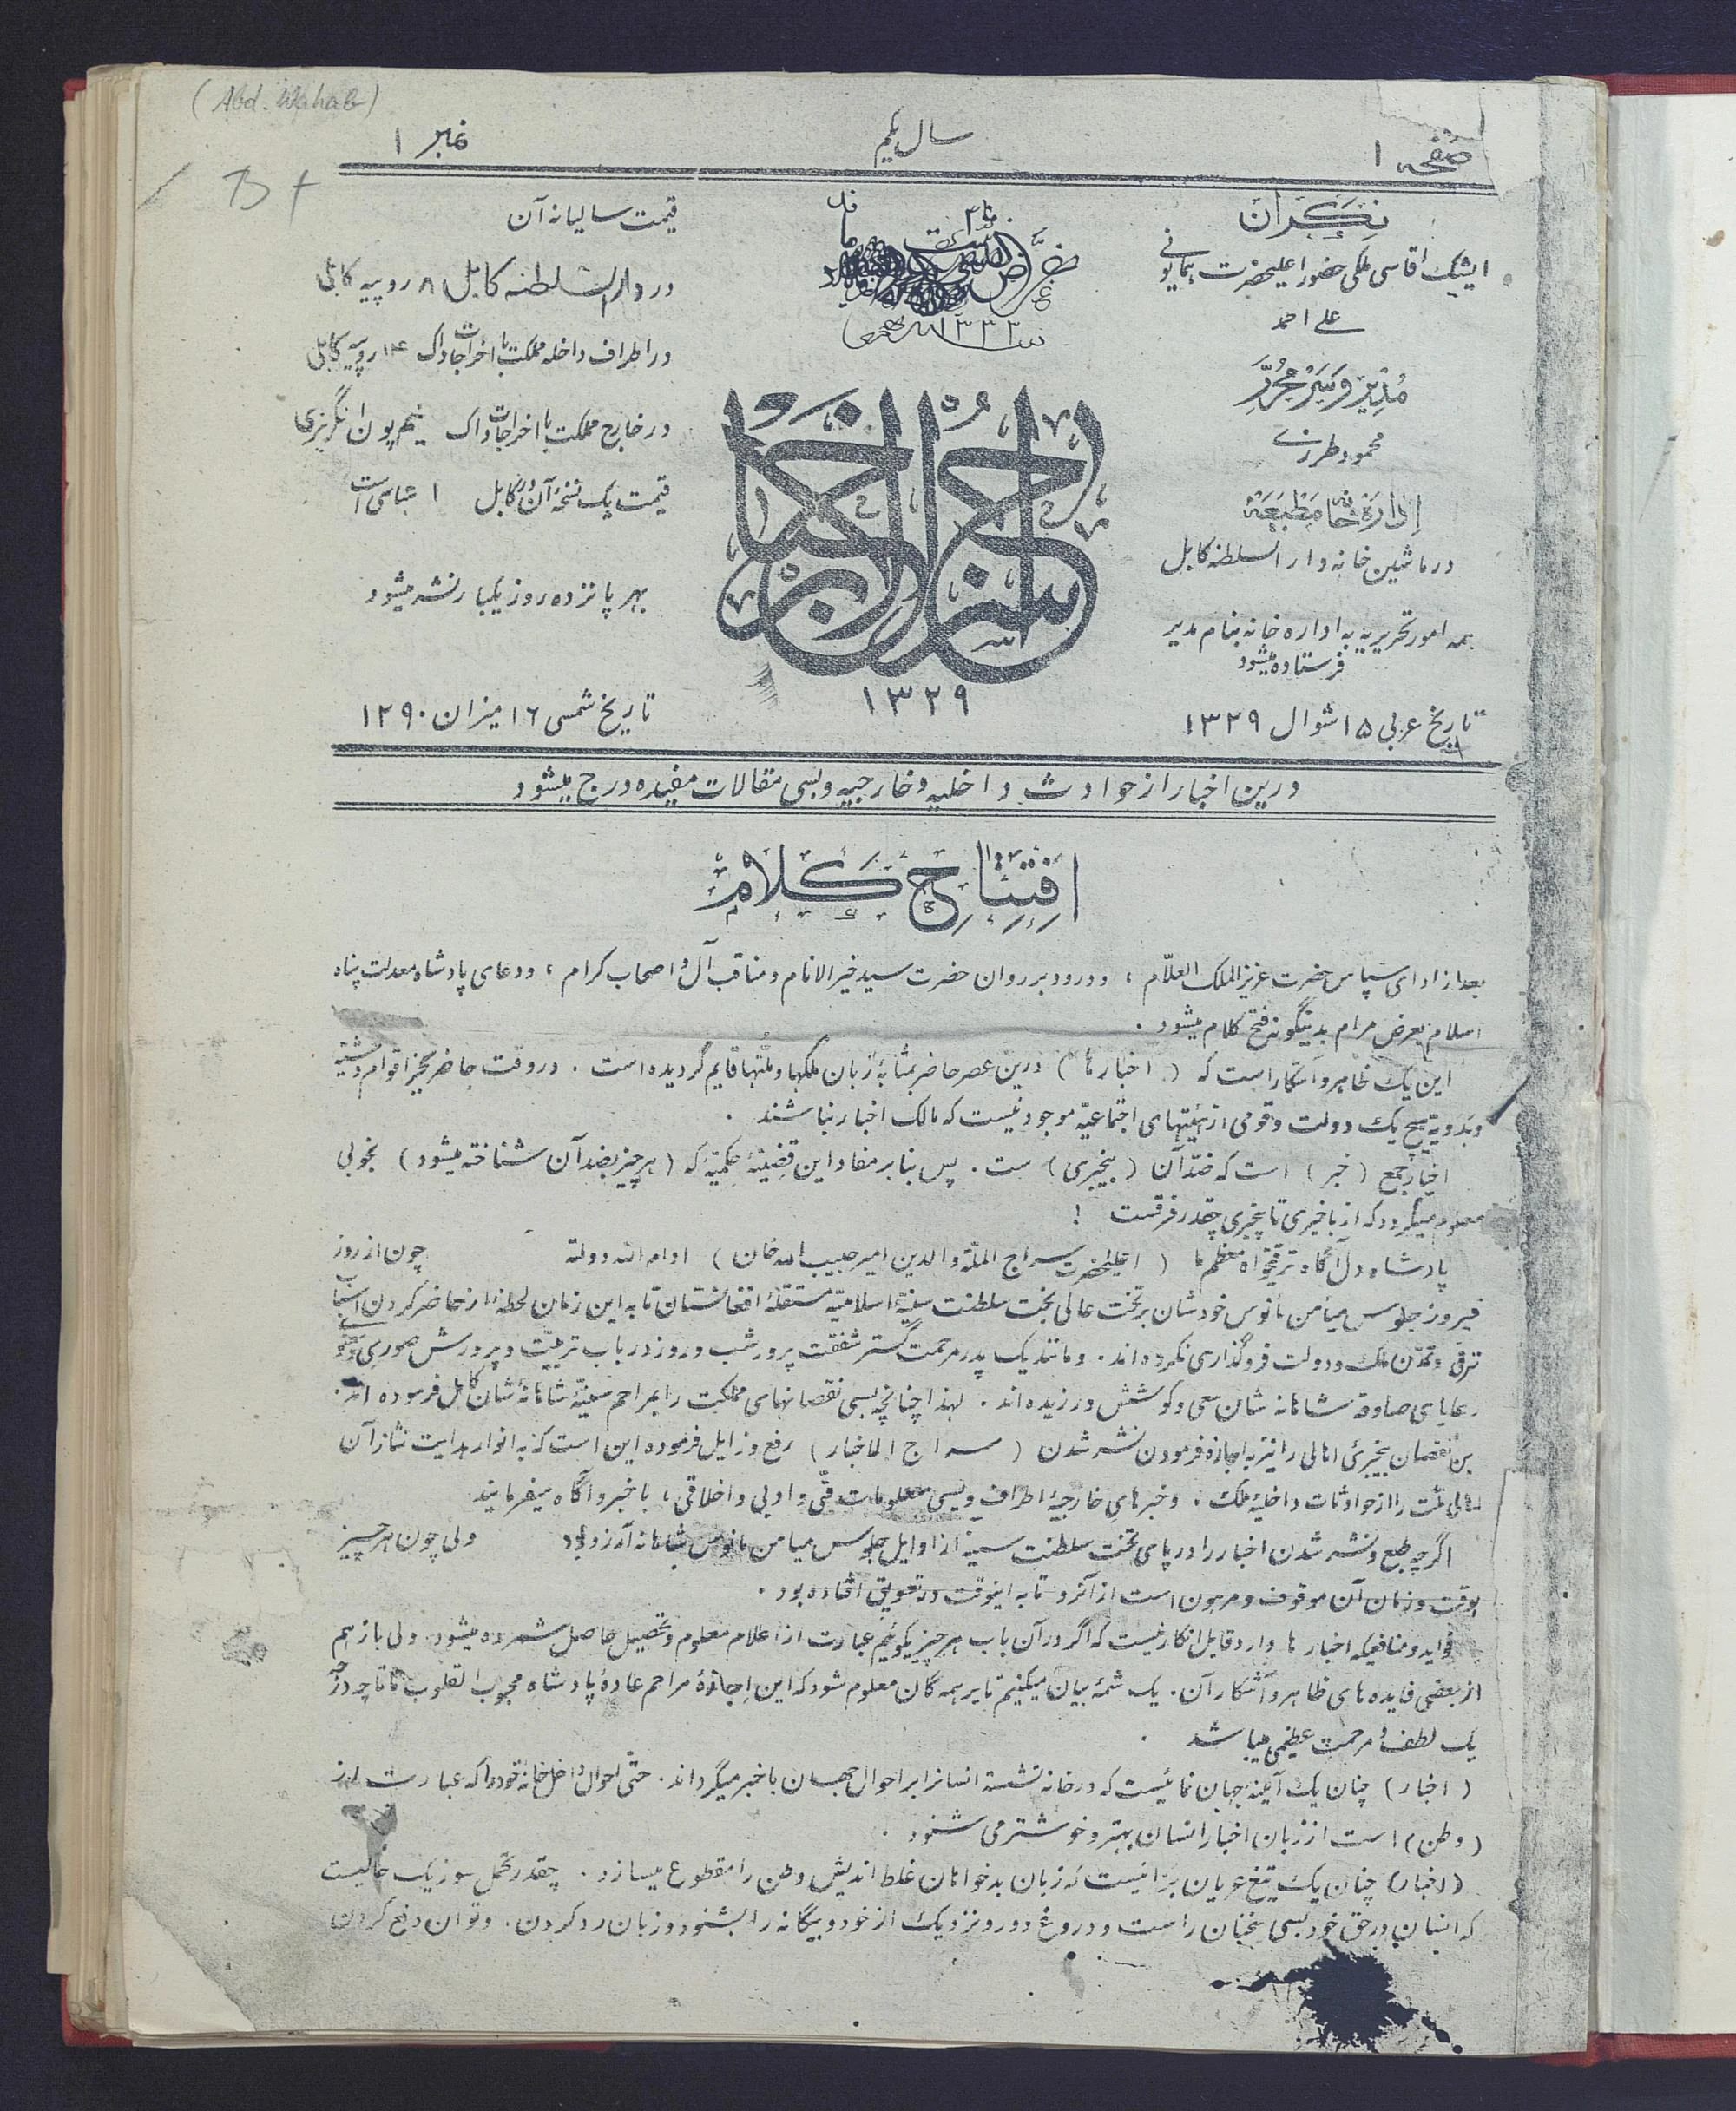 (Abd. Wahab)
صفحه ۱
سال یکم
نمبر ۱
نگران
ایشیک اقاسی ملکی حضور اعلیحضرت همایونی
علی احمد
مدیر و سر محرر
محمود طرزی
اداره خانه مطبعه
در ماشین خانه دار السلطنه کابل
همه امور تحریریه به اداره خانه بنام مدیر
فرستاده میشود
تاریخ عربی ۱۵ شوال ۱۳۲۹
۱۳۳۳
سراج الاخبار
۱۳۲۹
قیمت سالیانه آن
در دار السلطنه کابل ۸ روپیه کابلی
در اطراف داخله مملکت با اخراجات داک ۱۴ روپیه کابلی
در خارج مملکت با اخراجات داک نیم پون انگریزی
قیمت یک نسخهٔ آن در کابل ۱ عباسی است
بهر پانزده روز یکبار نشر میشود
تاریخ شمسی ۱۶ میزان ۱۲۹۰
درین اخبار از حوادث داخلیه و خارجیه و بسی مقالات مفیده درج میشود
افتتاح کلام
بعد از ادای سپاس حضرت عزیز الملک العلّام ، و درود بر روان حضرت سید خیر الانام و مناقب آل و اصحاب کرام ، و دعای پادشاه معدلت پناه
اسلام بعرض مرام بدینگونه فتح کلام میشود .
این یک ظاهر و آشکار است که ( اخبار ها ) درین عصر حاضر بمثابهٔ زبان ملکها و ملّتها قایم گردیده است . در وقت حاضر بجز اقوام وحشیه
و بدویه هیچ یک دولت و قومی از هیئتهای اجتماعیّه موجود نیست که مالک اخبار نباشند .
اخبار جمع ( خبر ) است که ضدّ آن ( بیخبری ) ست . پس بنابر مفاد این قضیهٔ حکمیّهٔ که ( هر چیز بضد آن شناخته میشود ) بخوبی
معلوم میگردد که از باخبری تا بیخبری چقدر فرقست !
پادشاه دل آگاه ترقیخواه معظم ما ( اعلیحضرت سراج الملّة والدین امیر حبیب الله خان ) ادام الله دولته چون از روز
فیروز جلوس میامن مأنوس خودشان بر تخت عالی بخت سلطنت سنیهٔ اسلامیّه مستقلهٔ افغانستان تا به این زمان لحظهٔ از حاضر کردن اسباب
ترقی و تمدّن ملک و دولت فروگذاری نکرده‌اند . و مانند یک پدر مرحمت گستر شفقت پرور شب و روز در باب تربیّت و پرورش صوری و معنوی
رعایای صادقهٔ شاهانه شان سعی و کوشش ورزیده‌اند . لهذا چنانچه بسی نقصانهای مملکت را بمراحم سنیهٔ شاهانهٔ شان کامل فرموده اند .
نقصان بیخبریٔ اهالی را نیز به اجازه فرمودن نشر شدن ( سراج الاخبار ) رفع و زایل فرموده این است که به انوار هدایت نثار آن
ملّت را از حوادثات داخلیهٔ ملک ، و خبرهای خارجیهٔ اطراف و بسی معلومات فنّی و ادبی و اخلاقی ، با خبر و آگاه میفرمایند
اگرچه طبع و نشر شدن اخبار را در پای تخت سلطنت سنیه از اوایل جلوس میامن مأنوس شاهانه آرزو بود ولی چون هر چیز
بوقت و زمان آن موقوف و مرهون است از آنرو تا به اینوقت در تعویق افتاده بود .
فواید و منافعیکه اخبار ها دارد قابل انکار نیست که اگر در آن باب هر چیز بگوئیم عبارت از اعلام معلوم و تحصیل حاصل شمرده میشود . ولی باز هم
از بعضی فایده های ظاهر و آشکار آن . یک شمهٔ بیان میکنیم تا بر همه گان معلوم شود که این اجازهٔ مراحم عادهٔ پادشاه محبوب القلوب ما تا چه درجه
یک لطف و مرحمت عظیمی میباشد .
( اخبار ) چنان یک آیینهٔ جهان نمائیست که در خانه نشسته انسانرا بر احوال جهان باخبر میگرداند . حتّی احوال داخل خانهٔ خود را که عبارت از
( وطن ) است از زبان اخبار انسان بهتر و خوشتر می شنود .
( اخبار ) چنان یک تیغ عریان برّانیست که زبان بدخواهان غلط اندیش وطن را مقطوع میسازد . چقدر تحمل سوز یک حالیست
که انسان در حق خود بسی سخنان راست و دروغ دور و نزدیک از خود و بیگانه را بشنود و زبان رد کردن . و توان دفع کردن